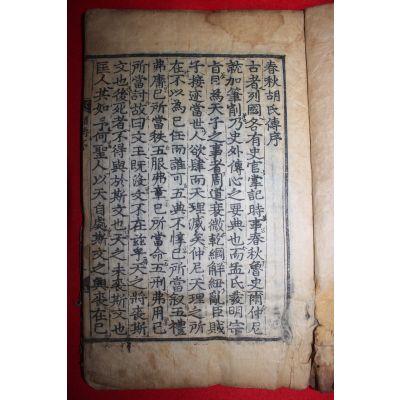 春秋胡氏傳序
古者列國各有史官掌記時事春秋魯史爾仲尼
就加筆削乃史外傳心之要典也而孟氏發明宗
旨目為天子之事者周道衰微乾綱解紐亂臣賊
子接迹當世人欲肆而天理滅矣仲尼天理之所
在不以為己任而誰可五典不惇己所當叙五禮
弗庸己所當秩五服弗章己所當命五刑弗用己
所當討故曰文王既沒文不在茲乎天之將喪斯
文也後死者不得與於斯文也天之未喪斯文也
匡人其如予何聖人以天自處斯文之興喪在己